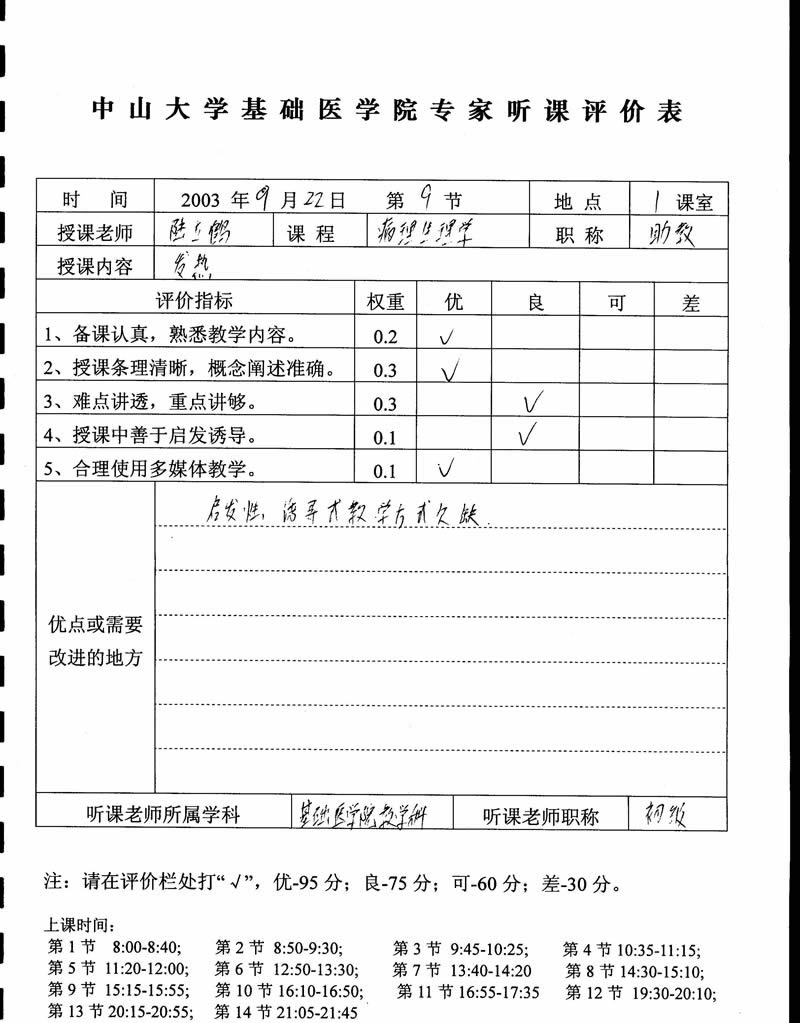 中山大学基础医学院专家听课评价表
时 间 2003 年 9 月 22 日 第 9 节 地 点 1 课室
授课老师 陆立鹤 课 程 病理生理学 职 称 助教
授课内容 发热
评价指标 权重 优 良 可 差
1、备课认真，熟悉教学内容。 0.2 √
2、授课条理清晰，概念阐述准确。 0.3 √
3、难点讲透，重点讲够。 0.3 √
4、授课中善于启发诱导。 0.1 √
5、合理使用多媒体教学。 0.1 √
启发性、诱导式教学方式欠缺.
优点或需要
改进的地方
听课老师所属学科 基础医学院教学科 听课老师职称 初级
注：请在评价栏处打“√”，优-95 分；良-75 分；可-60 分；差-30 分。
上课时间：
第 1 节 8:00-8:40; 第 2 节 8:50-9:30; 第 3 节 9:45-10:25; 第 4 节 10:35-11:15;
第 5 节 11:20-12:00; 第 6 节 12:50-13:30; 第 7 节 13:40-14:20 第 8 节 14:30-15:10;
第 9 节 15:15-15:55; 第 10 节 16:10-16:50; 第 11 节 16:55-17:35 第 12 节 19:30-20:10;
第 13 节 20:15-20:55; 第 14 节 21:05-21:45